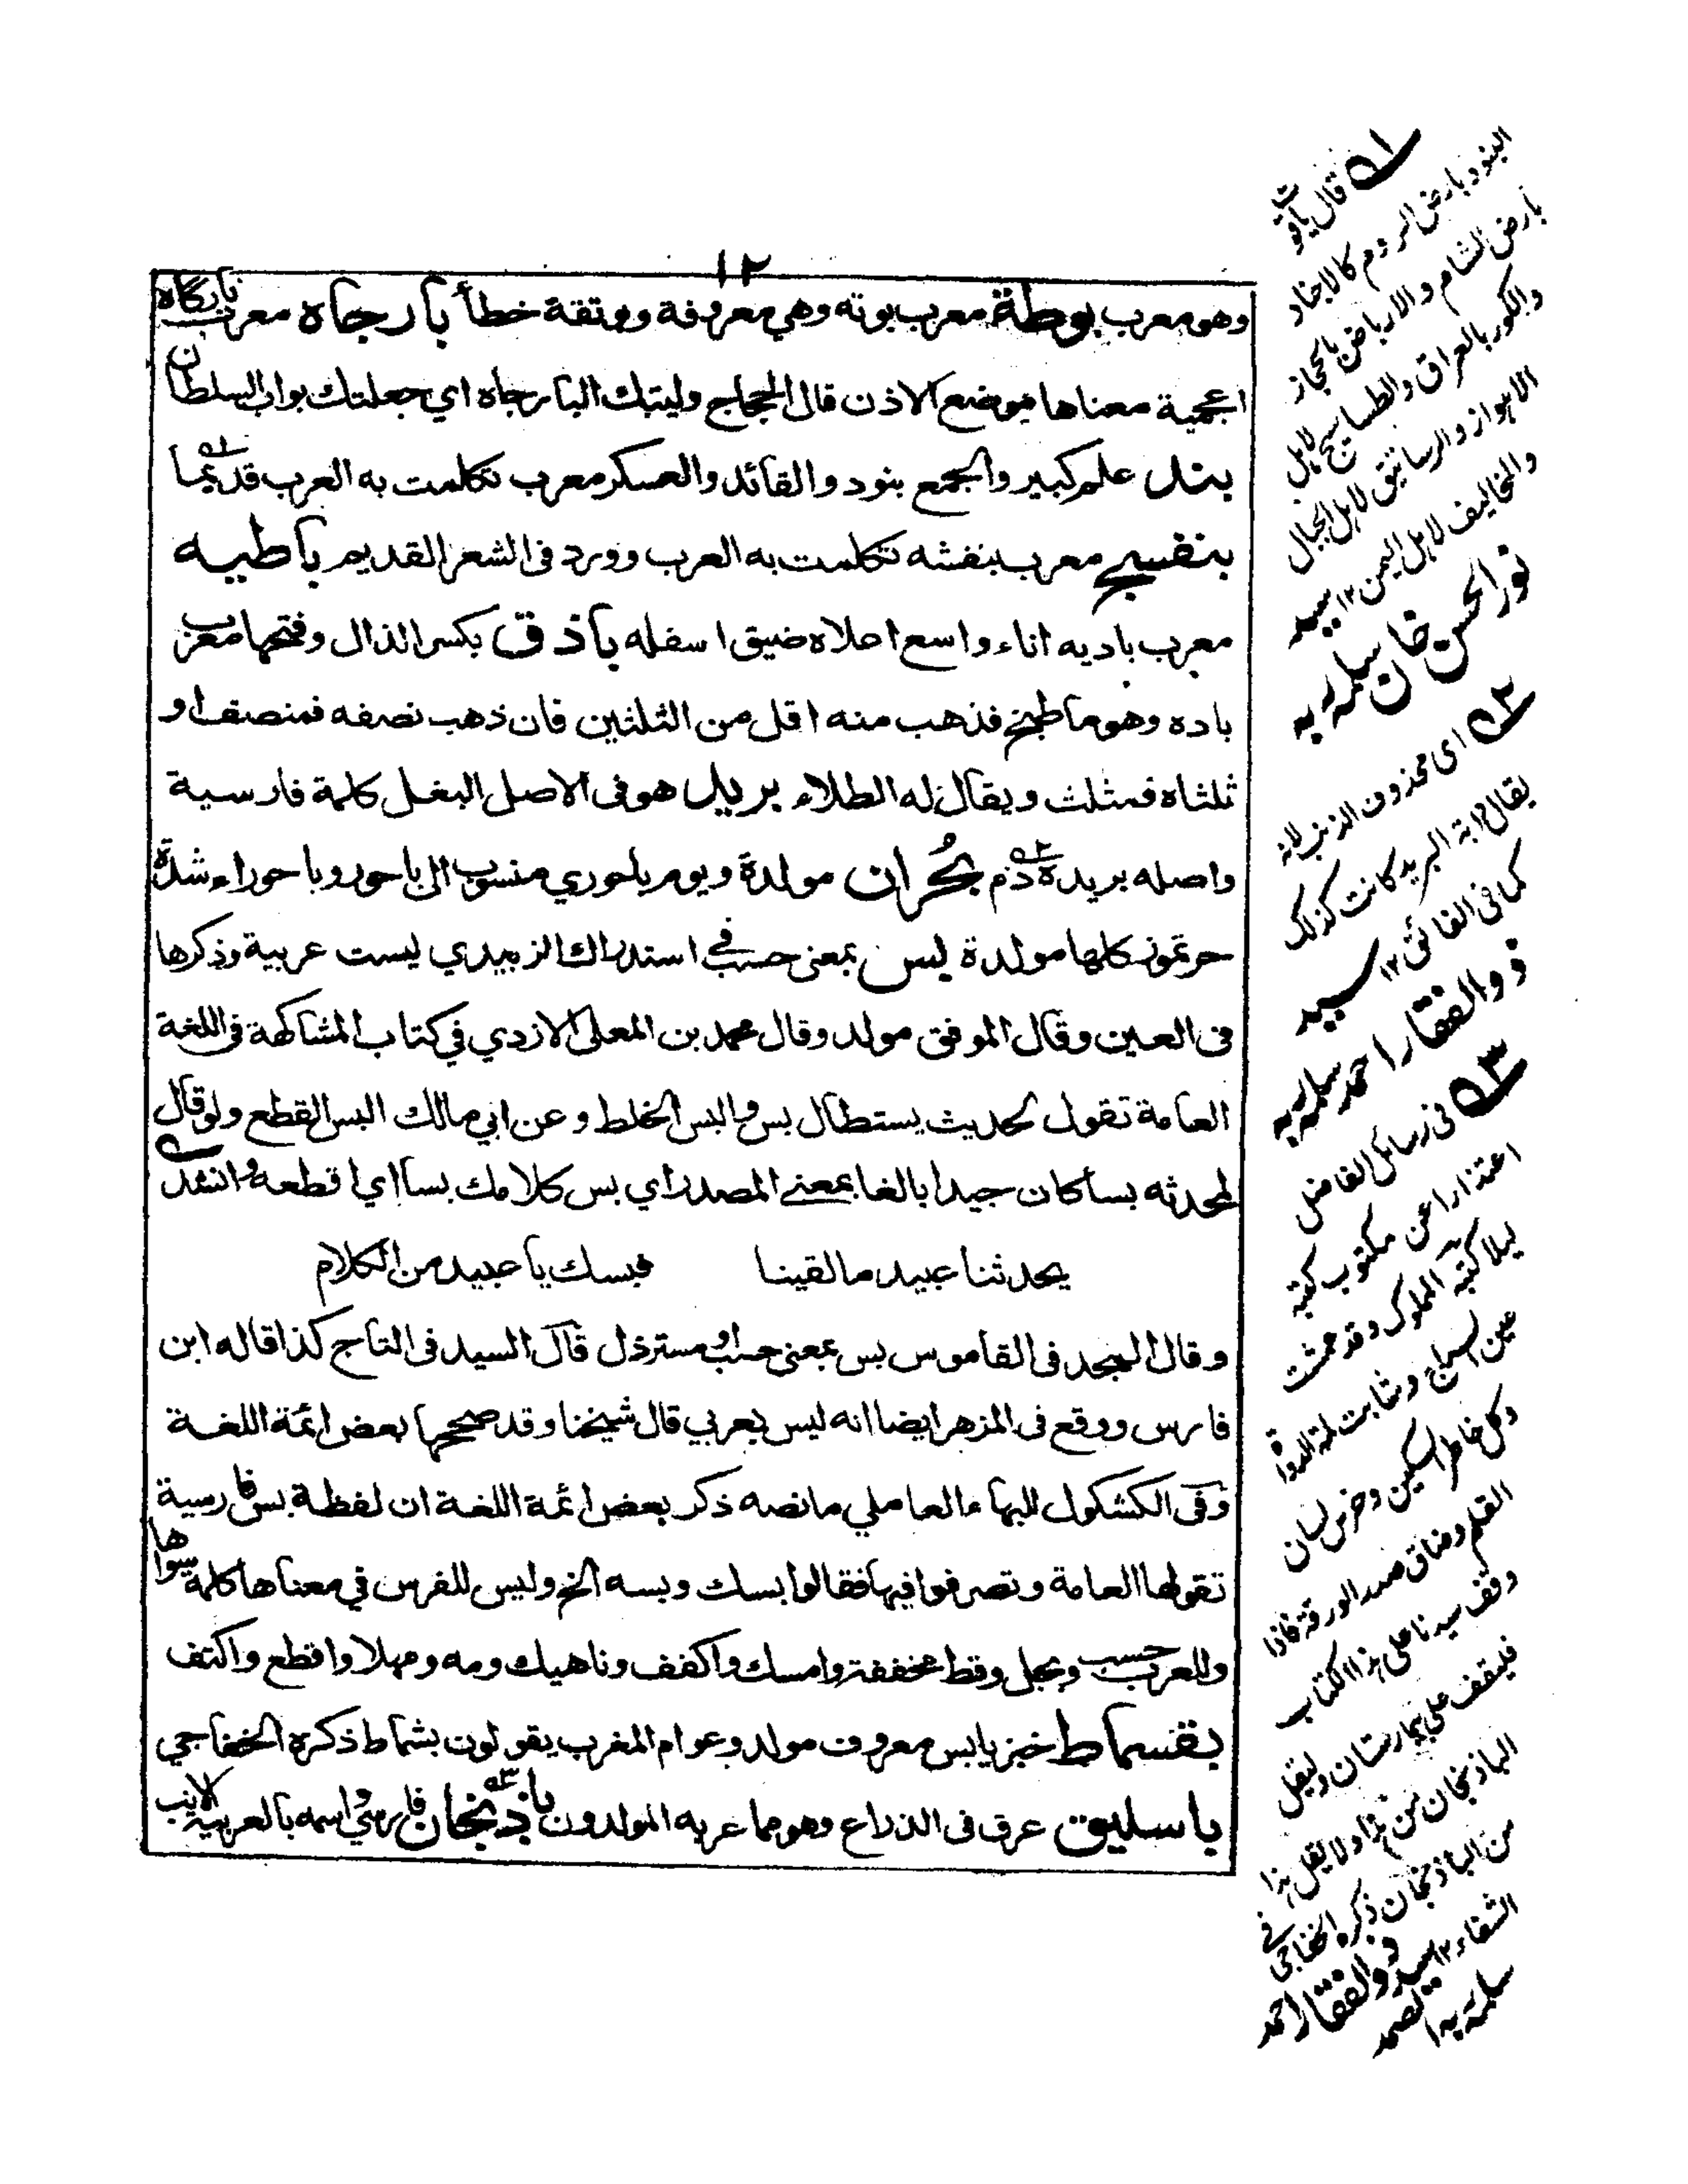 ١٢
وهو معرب بوطة معرب بوته وهي معروفة وبوتقة خطأ بارجاه معرب بارگاه
اعجمية معناها موضع الاذن قال الحجاج وليتك البارجاه اي جعلتك بواب السلطان
بند علم كبير والجمع بنود والقائد والعسكر معرب تكلمت به العرب قديما
بنفسج معرب بنفشه تكلمت به العرب وورد فى الشعر القديم باطيه
معرب باديه اناء واسع اعلاه ضيق اسفله باذق بكسر الذال وفتحها معرب
باده وهو ما طبخ فذهب منه اقل من الثلثين فان ذهب نصفه فمنصف او
ثلثاه فمثلث ويقال له الطلاء بريد هو فى الاصل البغل كلمة فارسية
واصله بريده دم بُحران مولدة ويوم باحوري منسوب الى باحور وباحوراء شدة
حر تموز كلها مولدة بس بمعنى حسب في استدراك الزبيدي ليست عربية وذكرها
فى العين وقال الموفق مولد وقال محمد بن المعلى الازدي في كتاب المشاكهة فى اللغة
العامة تقول لحديث يستطال بس والبس الخلط وعن ابي مالك البس القطع ولو قال
لمحدثه بسا كان جيدا بالغا بمعنے المصدر اي بس كلامك بسا اي اقطعه وانشد
يحدثنا عبيد ما لقينا فبسك يا عبيد من الكلام
وقال المجد فى القاموس بس بمعنى حسب او مسترذل قال السيد فى التاج كذا قاله ابن
فارس ووقع فى المزهر ايضا انه ليس بعربي قال شيخنا وقد صححها بعض ائمة اللغة
وفى الكشكول للبهاء العاملي ما نصه ذكر بعض ائمة اللغة ان لفظة بس فارسية
تقولها العامة وتصرفوا فيها فقالوا بسك وبسه الخ وليس للفرس في معناها كلمة سواها
وللعرب حسب وبجل وقط مخففة وامسك واكفف وناهيك ومه ومهلا واقطع واكتف
بقسماط خبز يابس معروف مولد وعوام المغرب يقولون بشماط ذكره الخفاجي
باسليق عرق فى الذراع وهو مما عربه المولدون باذنجان فارسي واسمه بالعربية الانب
١ قال ياقوت
البنود بارض الروم كالاجناد
بارض الشام والارباض بالحجاز
والكور بالعراق والطساسيج لاهل
الاهواز والرساتيق لاهل الجبال
والمخاليف لاهل اليمن ١٢ سيد
نور الحسن خان سلمه ربه
٢ اى محذوف الذنب لانه
يقال دابة البريد كانت كذلك
كما فى الفائق ١٢ سيد
ذو الفقار احمد سلمه ربه
٣ فى رسائل الفاضل
اعتذارا عن مكتوب كتبه
ليلا كتبه المملوك وقد عمشت
عين السراج وشابت لمة الدواة
وكل خاطر السكين وخرس لسان
القلم وضاق صدر الورقة فاذا
وقف سيدنا على هذا الكتاب
فليقف على بيمارستان وليقل
الباذنجان من هذا ولا يقل هذا
من الباذنجان ذكره الخفاجي في
الشفاء ١٢ سيد ذو الفقار احمد
سلمه ربه الصمد